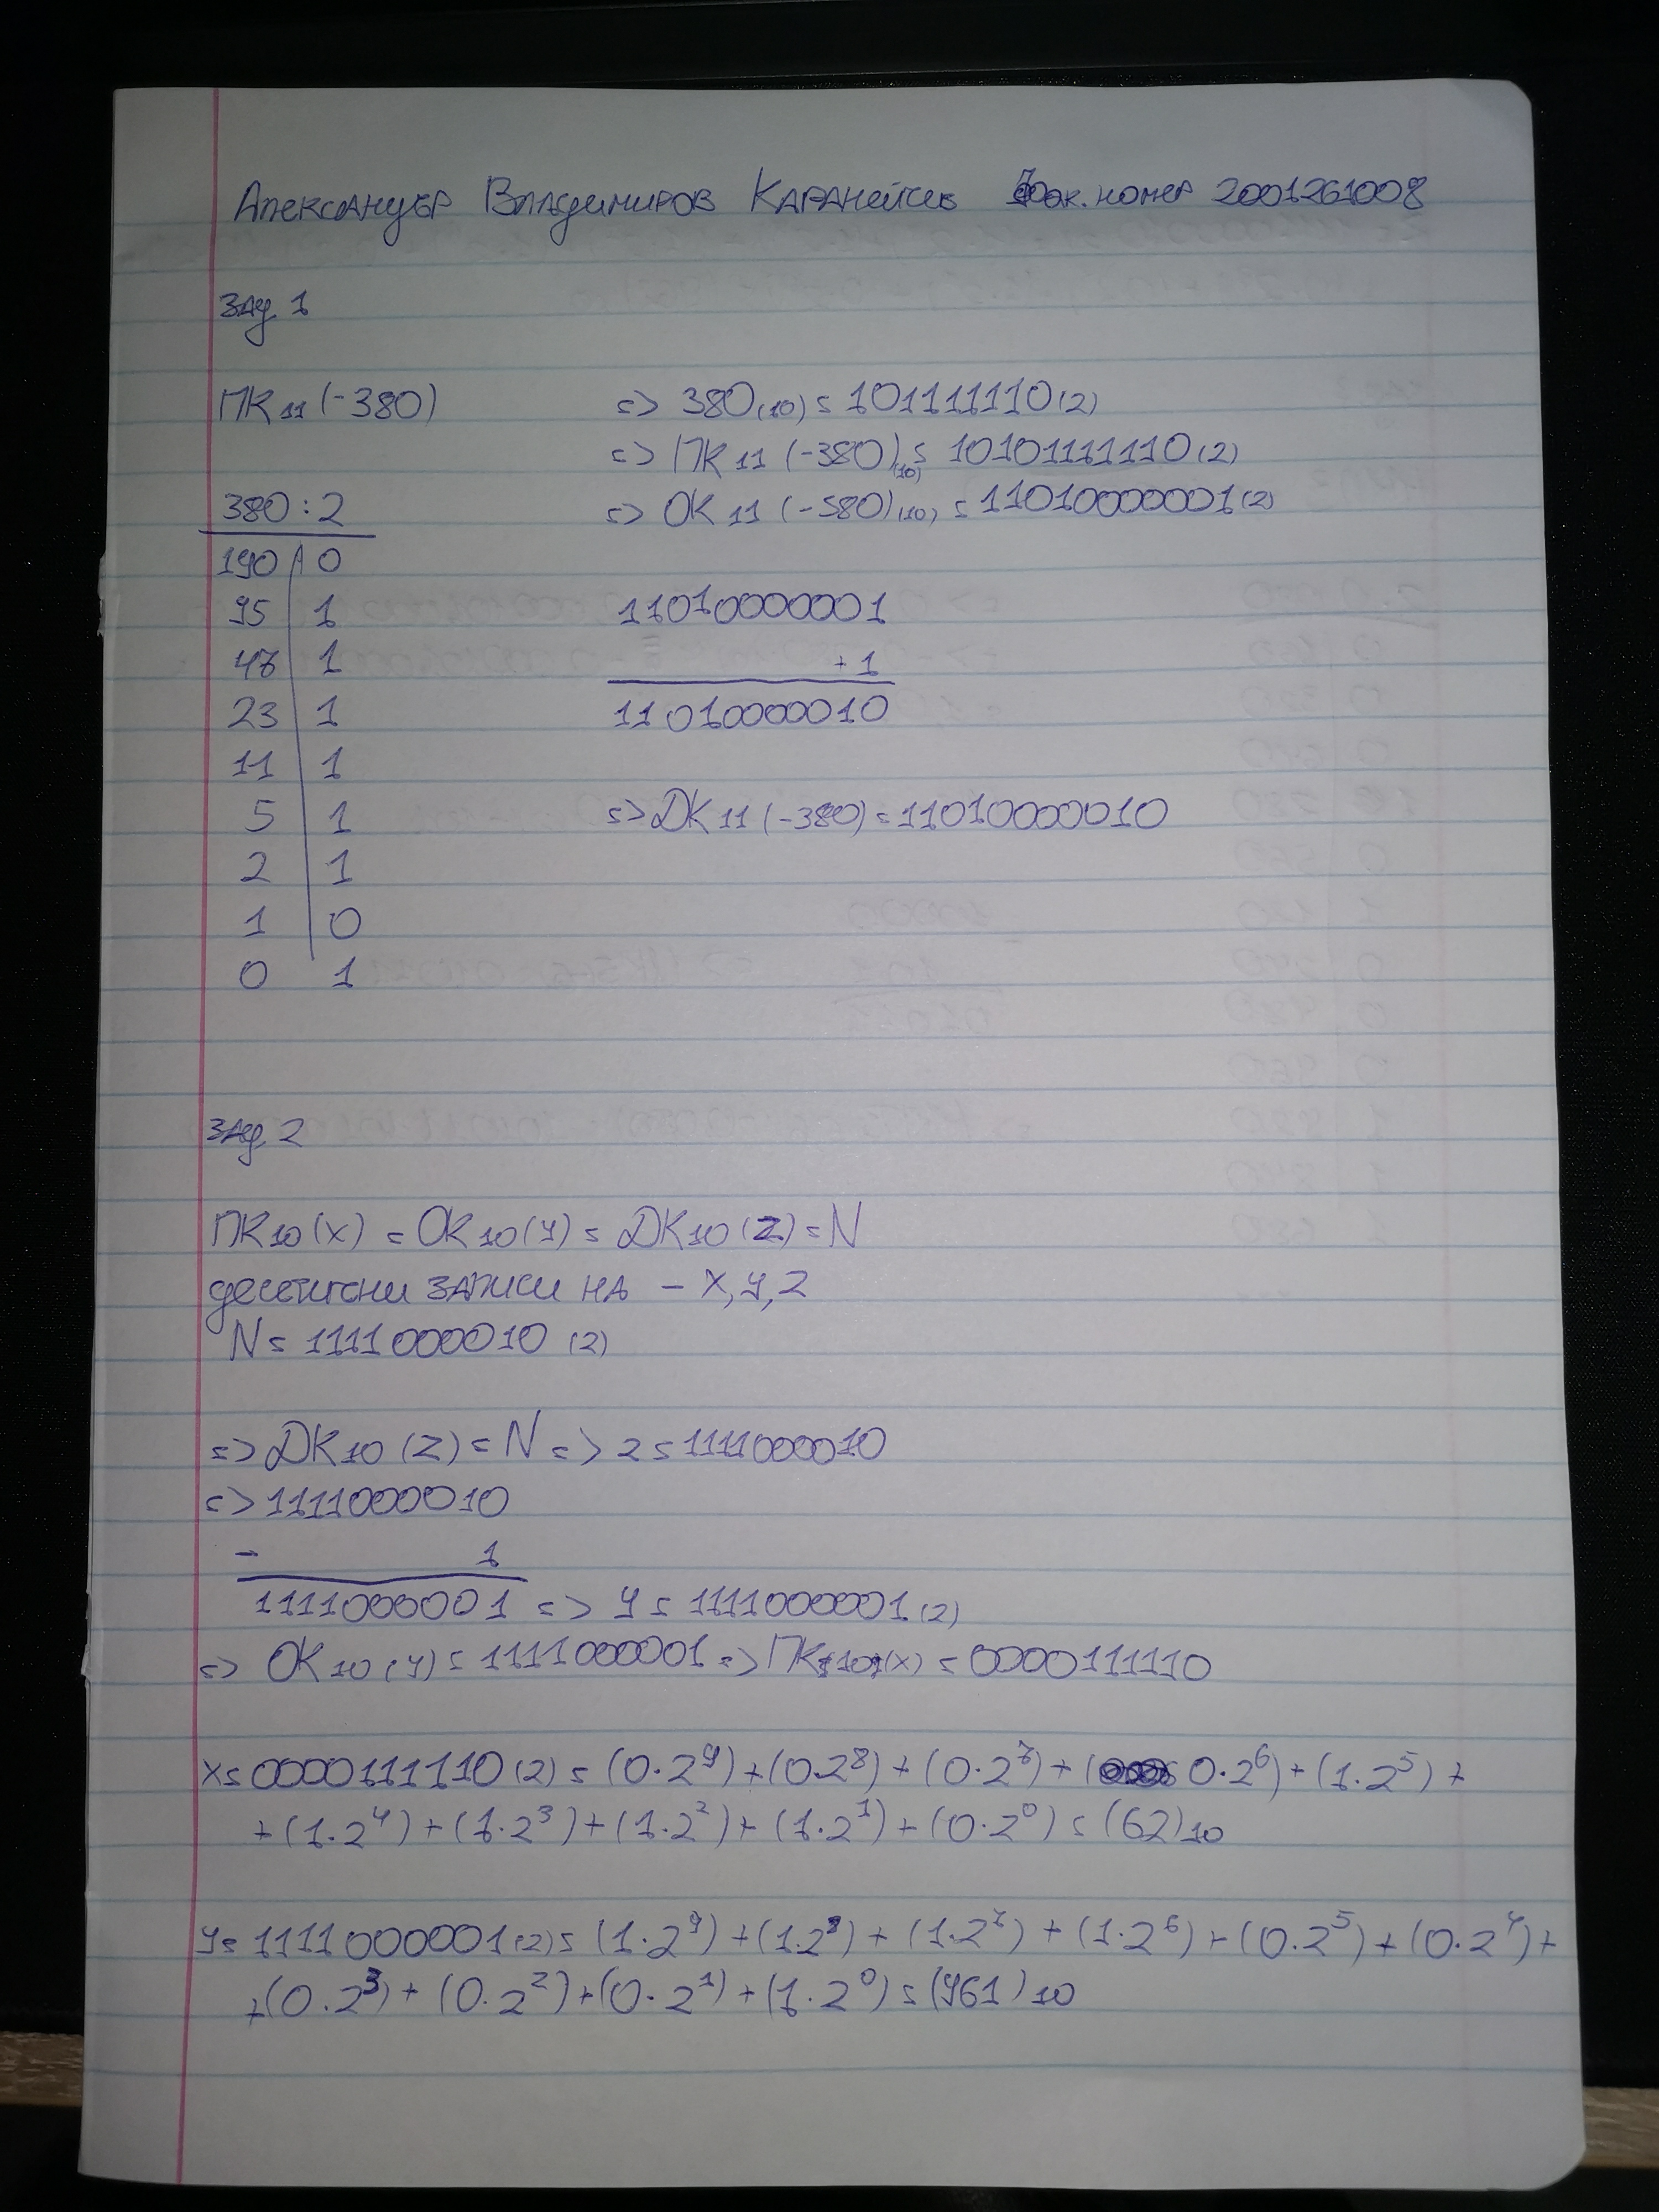 Александър Владимиров Каранейчев Фак. номер 2001261008
Зад. 1
ПК11 (-380) => 380(10) = 101111110(2)
=> ПК11 (-380)(10) = 10101111110(2)
380 : 2 => ОК11 (-580)(10) = 11010000001(2)
190 0
95 1 11010000001
47 1 + 1
23 1 11010000010
11 1
5 1 => ДК11 (-380) = 11010000010
2 1
1 0
0 1
Зад. 2
ПК10(X) = ОК10(y) = ДК10(Z) = N
десетични записи на - X, y, Z
N = 1111000010 (2)
=> ДК10 (Z) = N => Z = 1111000010
=> 1111000010
- 1
1111000001 => y = 1111000001(2)
=> ОК10(y) = 1111000001 => ПК10(x) = 0000111110
X = 0000111110(2) = (0.2⁹) + (0.2⁸) + (0.2⁷) + (0.2⁶) + (1.2⁵) +
+ (1.2⁴) + (1.2³) + (1.2²) + (1.2¹) + (0.2⁰) = (62)10
y = 1111000001(2) = (1.2⁹) + (1.2⁸) + (1.2⁷) + (1.2⁶) + (0.2⁵) + (0.2⁴) +
+ (0.2³) + (0.2²) + (0.2¹) + (1.2⁰) = (961)10